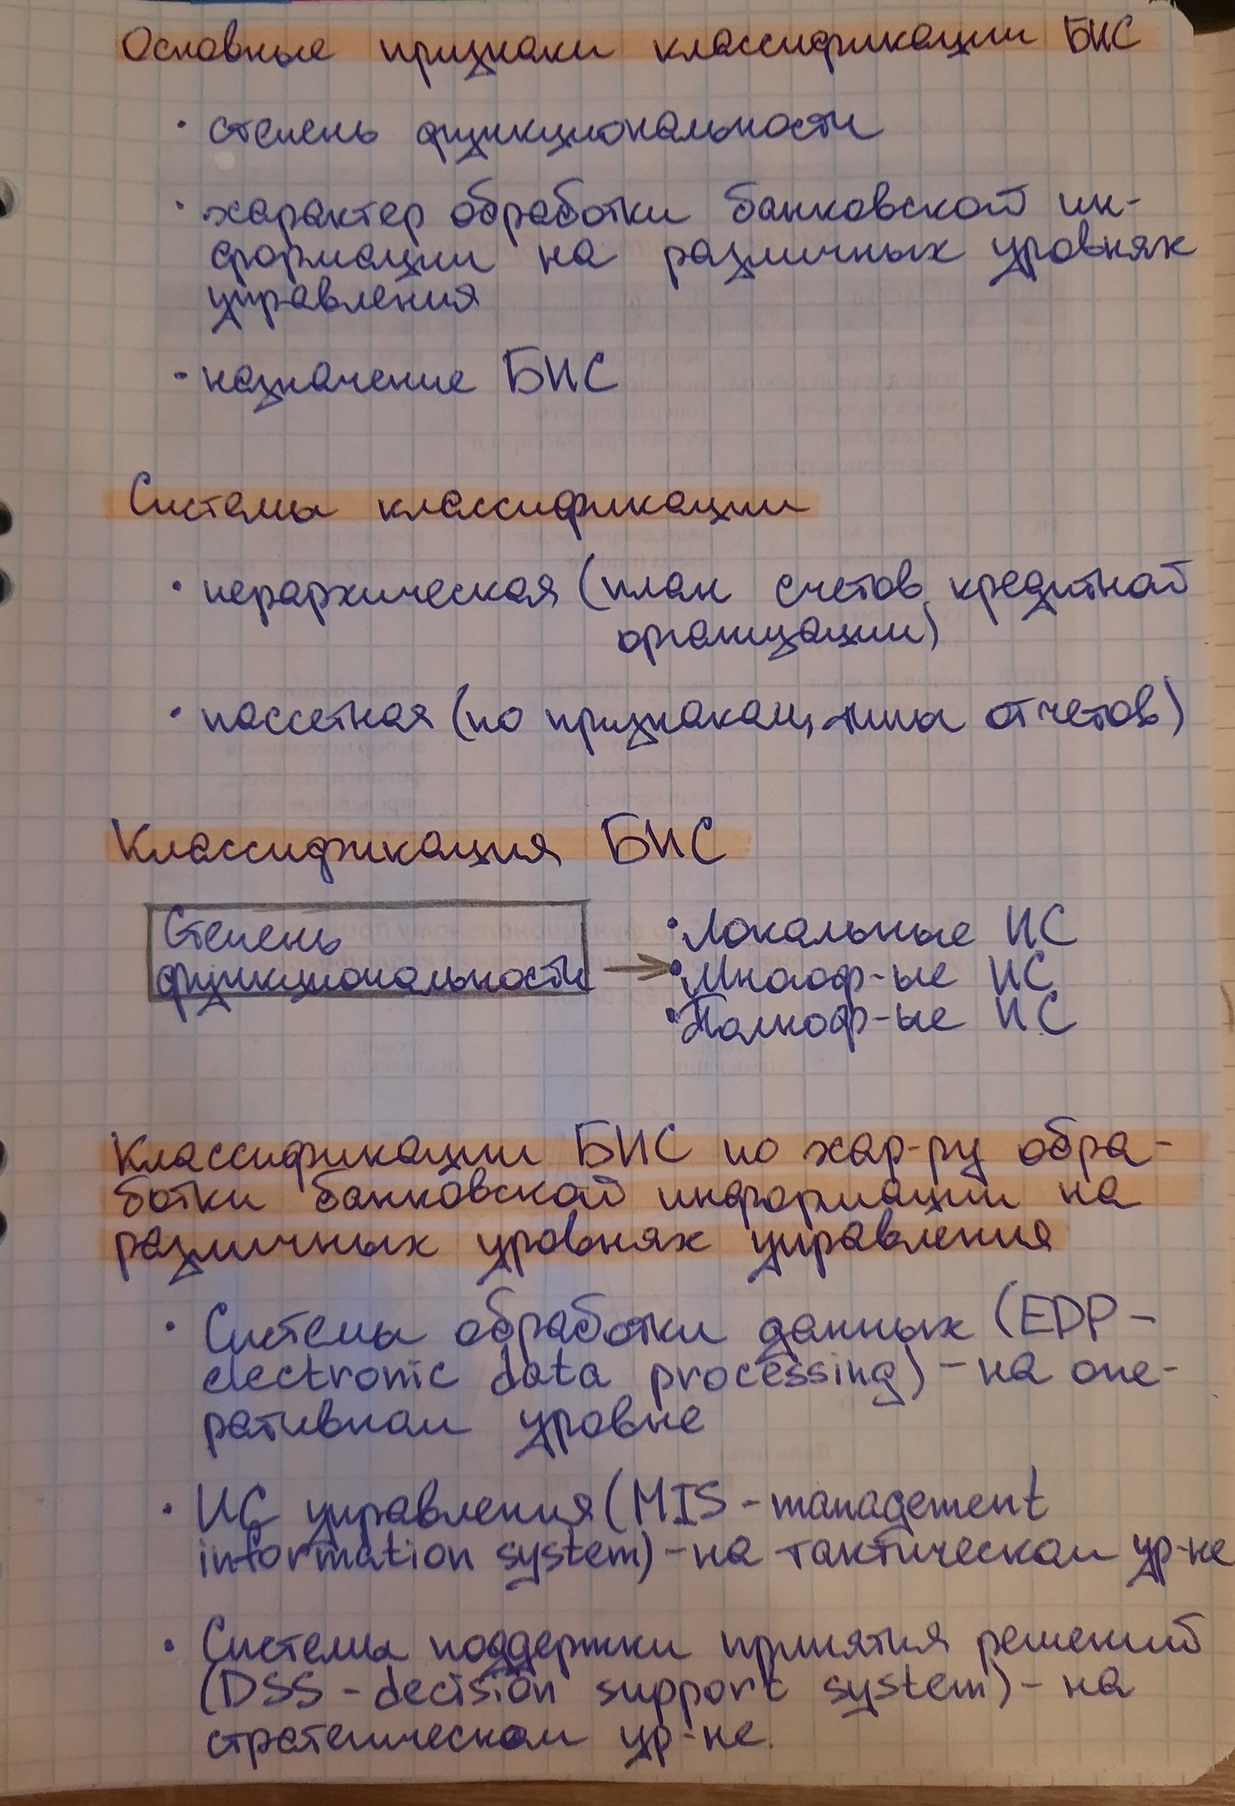 Основные признаки классификации БИС
· степень функциональности
· характер обработки банковской ин-
формации на различных уровнях
управления
- назначение БИС
Системы классификации
· иерархическая (план счетов кредитной
организации)
· фассетная (по признакам, типы отчетов)
Классификация БИС
Степень
функциональности →
· Локальные ИС
· Многоф-ые ИС
· Полноф-ые ИС
Классификации БИС по хар-ру обра-
ботки банковской информации на
различных уровнях управления
· Системы обработки данных (EDP -
electronic data processing) - на опе-
ративном уровне
· ИС управления (MIS - management
information system) - на тактическом ур-не
· Системы поддержки принятия решений
(DSS - decision support system) - на
стратегическом ур-не.